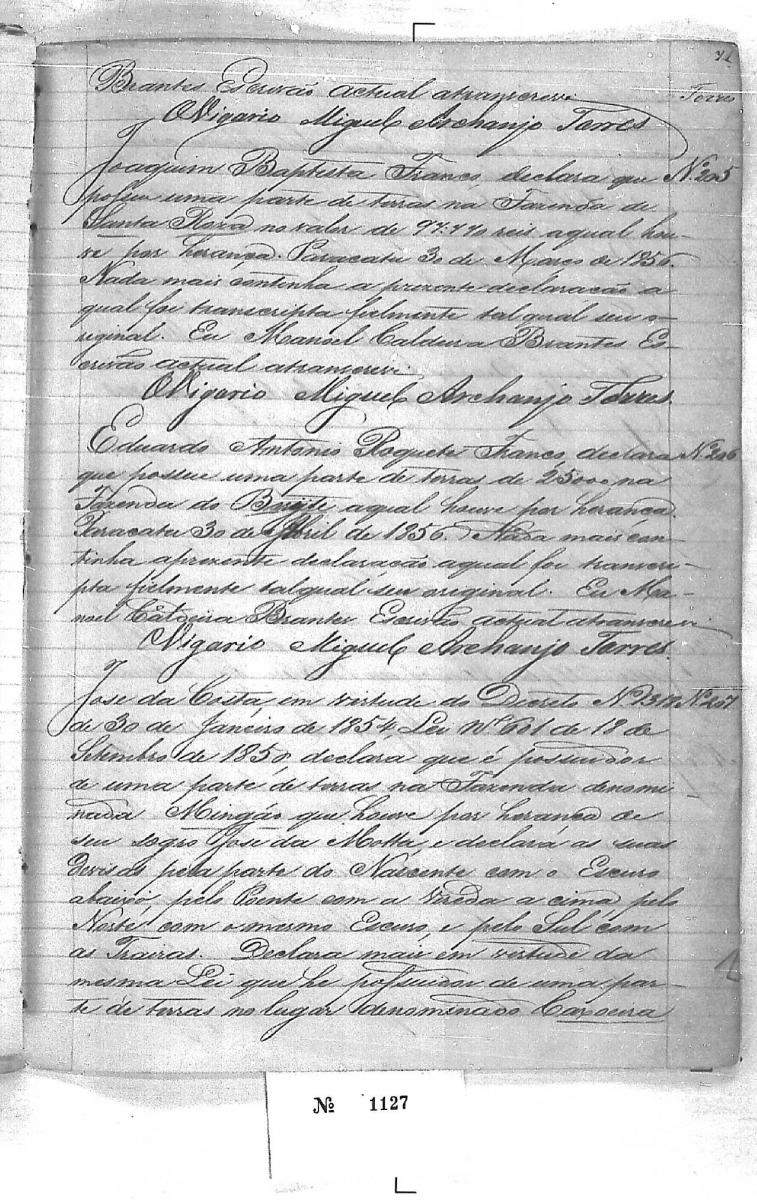 71
Torres
Brantes Escrivão actual atranscrevi
O Vigario Miguel Archanjo Torres
Joaquim Baptista Franco, declara que Nº 205
possue uma parte de terras na Fazenda de
Santa Roza no valor de reis aqual hou-
ve por herança. Paracatu 30 de Março de 1856.
Nada mais continha a prezente declaração a
qual foi transcripta fielmente tal qual seu o-
riginal. Eu Manoel Caldeira Brantes Es-
crivão actual atranscrevi.
O Vigario Miguel Archanjo Torres
Eduardo Antonio Roquete Franco, declara Nº 206
que possue uma parte de terras de 25000 na
Fazenda do aqual houve por herança.
Paracatu 30 de Abril de 1856. Nada mais con-
tinha aprezente declaração aqual foi transcri-
pta fielmente talqual seu original. Eu Ma-
noel Caldeira Brantes Escrivão actual atranscrevi.
O Vigario Miguel Archanjo Torres.
Jose da Costa, em virtude do Decreto Nº 1318 Nº 207
de 30 de Janeiro de 1854, Lei Nº 601 de 18 de
Setembro de 1850, declara que é possuidor
de uma parte de terras na Fazenda denomi-
nada Mingáo que houve por herança de
seu sogro Jose da Motta, e declara as suas
devisas pela parte do Nascente com o Escuro
abaixo, pelo Poente com a Vereda a cima pelo
Norte com o mesmo Escuro, e pelo Sul com
as Trairas. Declara mais em virtude da
mesma Lei que he possuidor de uma par-
te de terras no lugar denominado Capoeira
Nº 1127